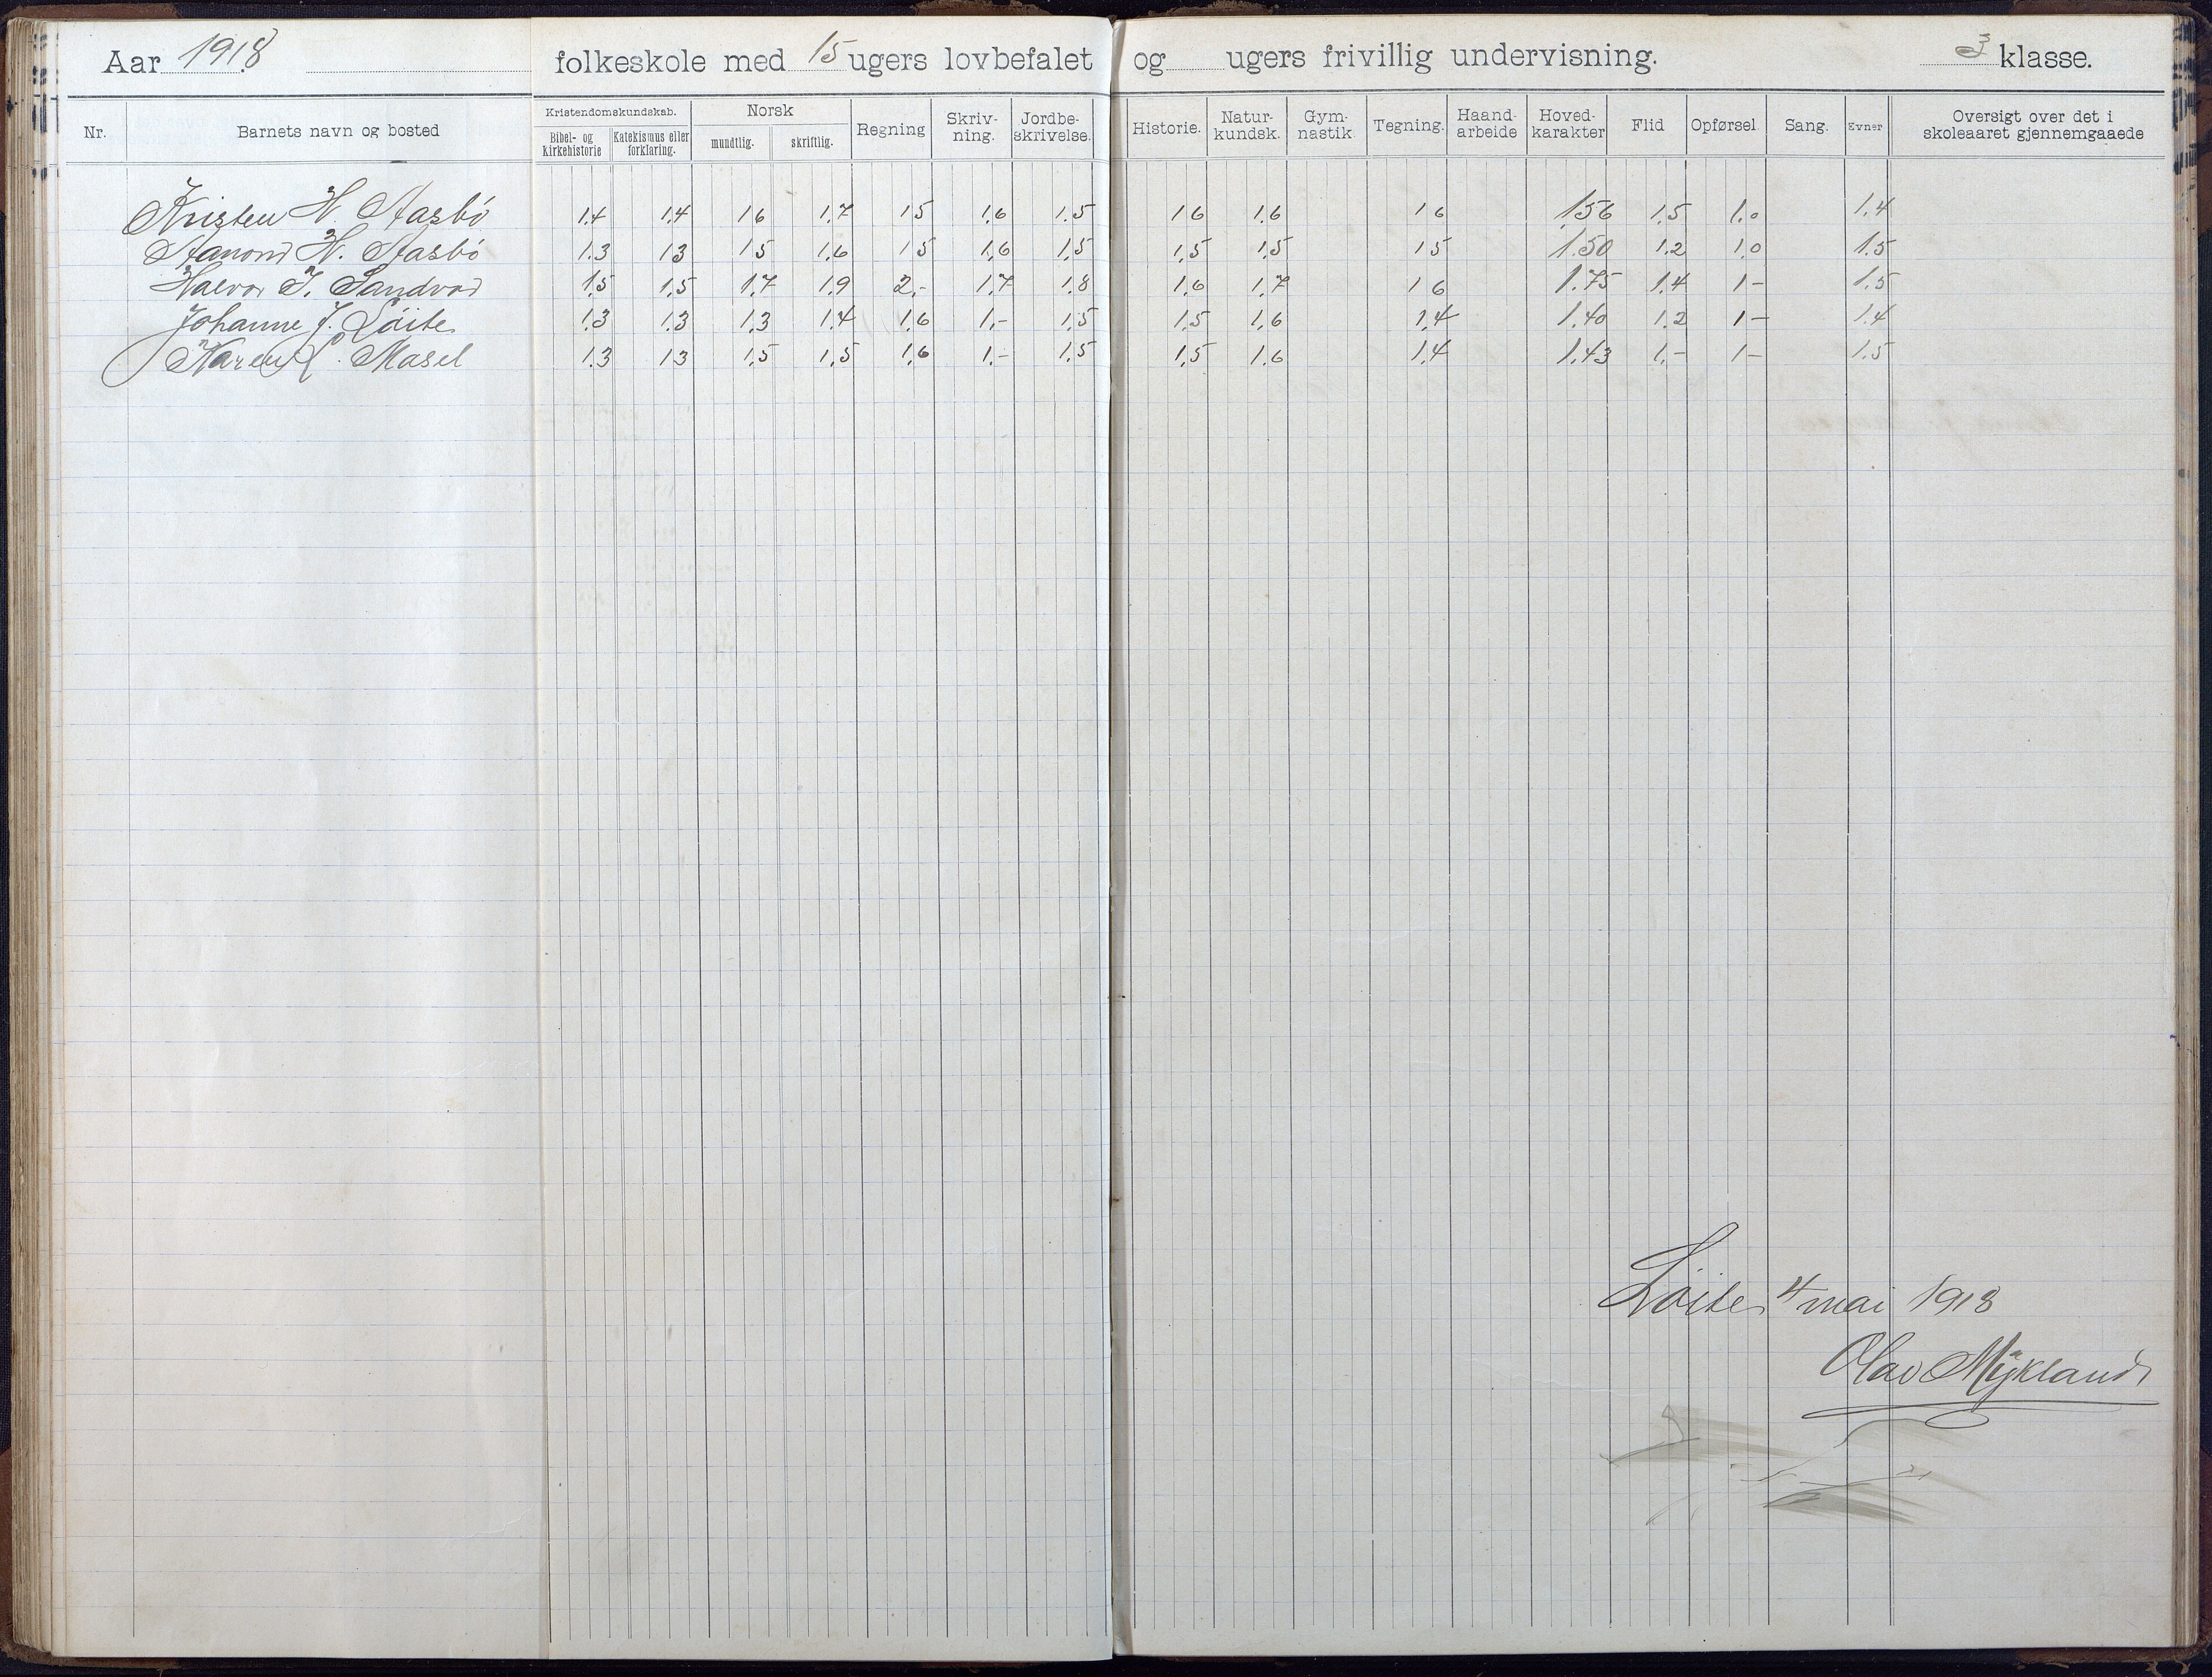 Aar 1918 folkeskole med 15 ugers lovbefalet og ugers frivillig undervisning. 3 klasse.
Nr. Barnets navn og bosted Kristendomskundskab. Bibel- og Kirkehistorie Katekismus eller forklaring. Norsk mundtlig. skriftlig. Regning Skriv-ning. Jordbe-skrivelse. Historie. Natur-kundsk. Gym-nastik Tegning. Haand-arbeide Hoved-karakter Flid Opførsel Sang. Evner Oversigt over det i skoleaaret gjennemgaaede
Kristen H. Aasbö 1.4 1.4 16 1.7 15 1.6 1.5 16 1.6 16 1.56 1.5 1.0 1.4
Aanond H. Aasbö 1.3 13 15 1.6 15 1.6 1.5 1.5 1.5 15 1.50 1.2 1.0 1.5
Halvor J. Sandvad 1.5 1.5 1.7 1.9 2,- 1.7 1.8 1.6 1.7 16 1.75 1.4 1- 1.5
Johanne J. Löite 1.3 1.3 1.3 1.4 1.6 1.- 1.5 1.5 1.6 1.4 1.40 1.2 1- 1.4
Karen Masel 1.3 13 1.5 1.5 1.6 1.- 1.5 1.5 1.6 1.4 1.43 1.- 1- 1.5
Löite 4 mai 1918
Olav Mykland